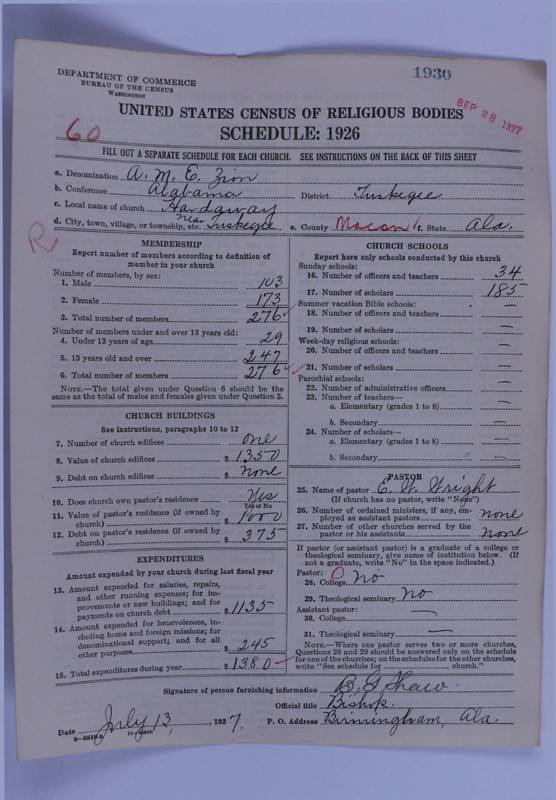 1930
DEPARTMENT OF COMMERCE
BUREAU OF THE CENSUS
WASHINGTON
SEP 28 1927
UNITED STATES CENSUS OF RELIGIOUS BODIES
SCHEDULE: 1926
60
FILL OUT A SEPARATE SCHEDULE FOR EACH CHURCH. SEE INSTRUCTIONS ON THE BACK OF THIS SHEET
a. Denomination A. M. E. Zion
b. Conference Alabama District Tuskegee
c. Local name of church Hardaway
d. City, town, village, or township, etc. near Tuskegee e. County Macon f. State Ala.
R
MEMBERSHIP
Report number of members according to definition of
member in your church
Number of members, by sex:
1. Male 103
2. Female 173
3. Total number of members 276
Number of members under and over 13 years old:
4. Under 13 years of age 29
5. 13 years old and over 247
6. Total number of members 276
NOTE.—The total given under Question 6 should be the
same as the total of males and females given under Question 3.
CHURCH BUILDINGS
See instructions, paragraphs 10 to 12
7. Number of church edifices one
8. Value of church edifices $ 1350
9. Debt on church edifices $ none
10. Does church own pastor's residence Yes
Yes or No
11. Value of pastor's residence (if owned by
church) $ 1000
12. Debt on pastor's residence (if owned by
church) $ 375
EXPENDITURES
Amount expended by your church during last fiscal year
13. Amount expended for salaries, repairs,
and other running expenses; for im-
provements or new buildings; and for
payments on church debt $ 1135
14. Amount expended for benevolences, in-
cluding home and foreign missions; for
denominational support; and for all
other purposes $ 245
15. Total expenditures during year $ 1380
CHURCH SCHOOLS
Report here only schools conducted by this church
Sunday schools:
16. Number of officers and teachers 34
17. Number of scholars 185
Summer vacation Bible schools:
18. Number of officers and teachers —
19. Number of scholars —
Week-day religious schools:
20. Number of officers and teachers —
21. Number of scholars —
Parochial schools:
22. Number of administrative officers —
23. Number of teachers—
a. Elementary (grades 1 to 8) —
b. Secondary —
24. Number of scholars—
a. Elementary (grades 1 to 8) —
b. Secondary —
PASTOR
25. Name of pastor E. W. Wright
(If church has no pastor, write "None")
26. Number of ordained ministers, if any, em-
ployed as assistant pastors none
27. Number of other churches served by the
pastor or his assistants none
If pastor (or assistant pastor) is a graduate of a college or
theological seminary, give name of institution below. (If
not a graduate, write "No" in the space indicated.)
Pastor: O
28. College No
29. Theological seminary No
Assistant pastor:
30. College —
31. Theological seminary —
NOTE.—Where one pastor serves two or more churches,
Questions 28 and 29 should be answered only on the schedule
for one of the churches; on the schedules for the other churches,
write "See schedule for church."
Signature of person furnishing information B. G. Shaw
Official title Bishop
Date July 13, 1927. P. O. Address Birmingham, Ala.